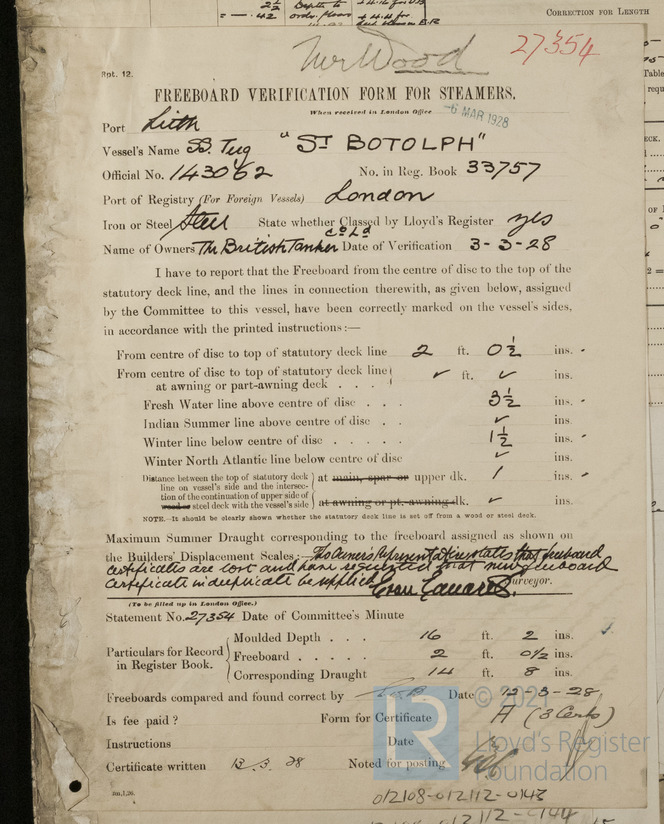 2½ Depth to
= — .42
CORRECTION FOR LENGTH
Mr Wood
27354
Rpt. 12.
FREEBOARD VERIFICATION FORM FOR STEAMERS.
When received in London Office -6 MAR 1928
Port Leith
Vessel's Name SS. Tug "ST BOTOLPH"
Official No. 143062 No. in Reg. Book 33757
Port of Registry (For Foreign Vessels) London
Iron or Steel Steel State whether Classed by Lloyd's Register yes
Name of Owners The British Tanker Co Ld Date of Verification 3-3-28
I have to report that the Freeboard from the centre of disc to the top of the
statutory deck line, and the lines in connection therewith, as given below, assigned
by the Committee to this vessel, have been correctly marked on the vessel's sides,
in accordance with the printed instructions :—
From centre of disc to top of statutory deck line 2 ft. 0½ ins.
From centre of disc to top of statutory deck line
at awning or part-awning deck . . . ✓ ft. ✓ ins.
Fresh Water line above centre of disc . . . 3½ ins.
Indian Summer line above centre of disc . . ✓ ins.
Winter line below centre of disc . . . . . 1½ ins.
Winter North Atlantic line below centre of disc ✓ ins.
Distance between the top of statutory deck
line on vessel's side and the intersec-
tion of the continuation of upper side of
wood or steel deck with the vessel's side
at main, spar or upper dk. 1 ins.
at awning or pt. awning dk. ✓ ins.
NOTE.—It should be clearly shown whether the statutory deck line is set off from a wood or steel deck.
Maximum Summer Draught corresponding to the freeboard assigned as shown on
the Builders' Displacement Scales:— The owners representative states that freeboard
certificates are lost and have requested that new freeboard
certificate in duplicate be supplied Surveyor.
(To be filled up in London Office.)
Statement No. 27354 Date of Committee's Minute
Particulars for Record
in Register Book.
Moulded Depth . . . 16 ft. 2 ins.
Freeboard . . . . . 2 ft. 0½ ins.
Corresponding Draught 14 ft. 8 ins.
Freeboards compared and found correct by Date 12-3-28
Is fee paid ? Form for Certificate A (3 Certs)
Instructions Date
Certificate written 13.3.28 Noted for posting
8m,1,26.
© 2021
LR
Lloyd's Register
Foundation
012108-012112-0143
012112-0144